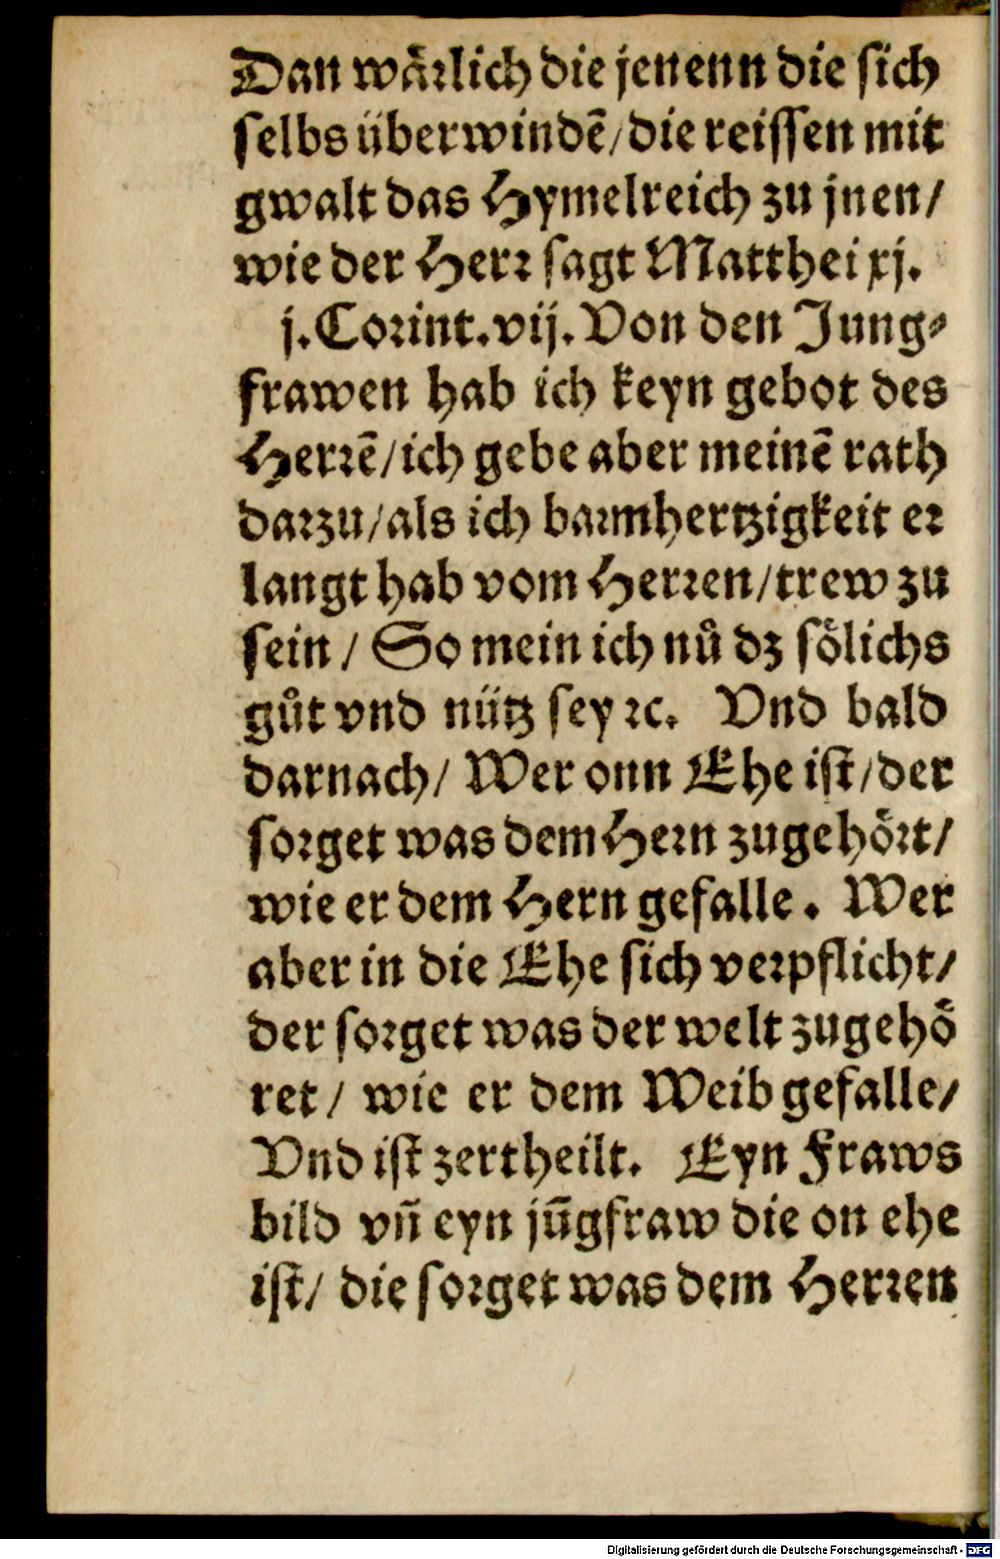 Dan wårlich die jenenn die sich
selbs überwindẽ/die reissen mit
gwalt das Hymelreich zu jnen/
wie der Herr sagt Matthei xj.
j. Corint. vij. Von den Jung⸗
frawen hab ich keyn gebot des
Herrẽ/ich gebe aber meinẽ rath
darzu/als ich barmhertzigkeit er
langt hab vom Herren/trew zu
sein/ So mein ich nů dz soͤlichs
gůt vnd nütz sey ꝛc. Vnd bald
darnach/ Wer onn Ehe ist/der
sorget was dem Hern zugehoͤrt/
wie er dem Hern gefalle. Wer
aber in die Ehe sich verpflicht/
der sorget was der welt zugehoͤ
ret/ wie er dem Weib gefalle/
Vnd ist zertheilt. Eyn Fraws
bild vñ eyn jũgfraw die on ehe
ist/ die sorget was dem Herren
Digitalisierung gefördert durch die Deutsche Forschungsgemeinschaft - DFG